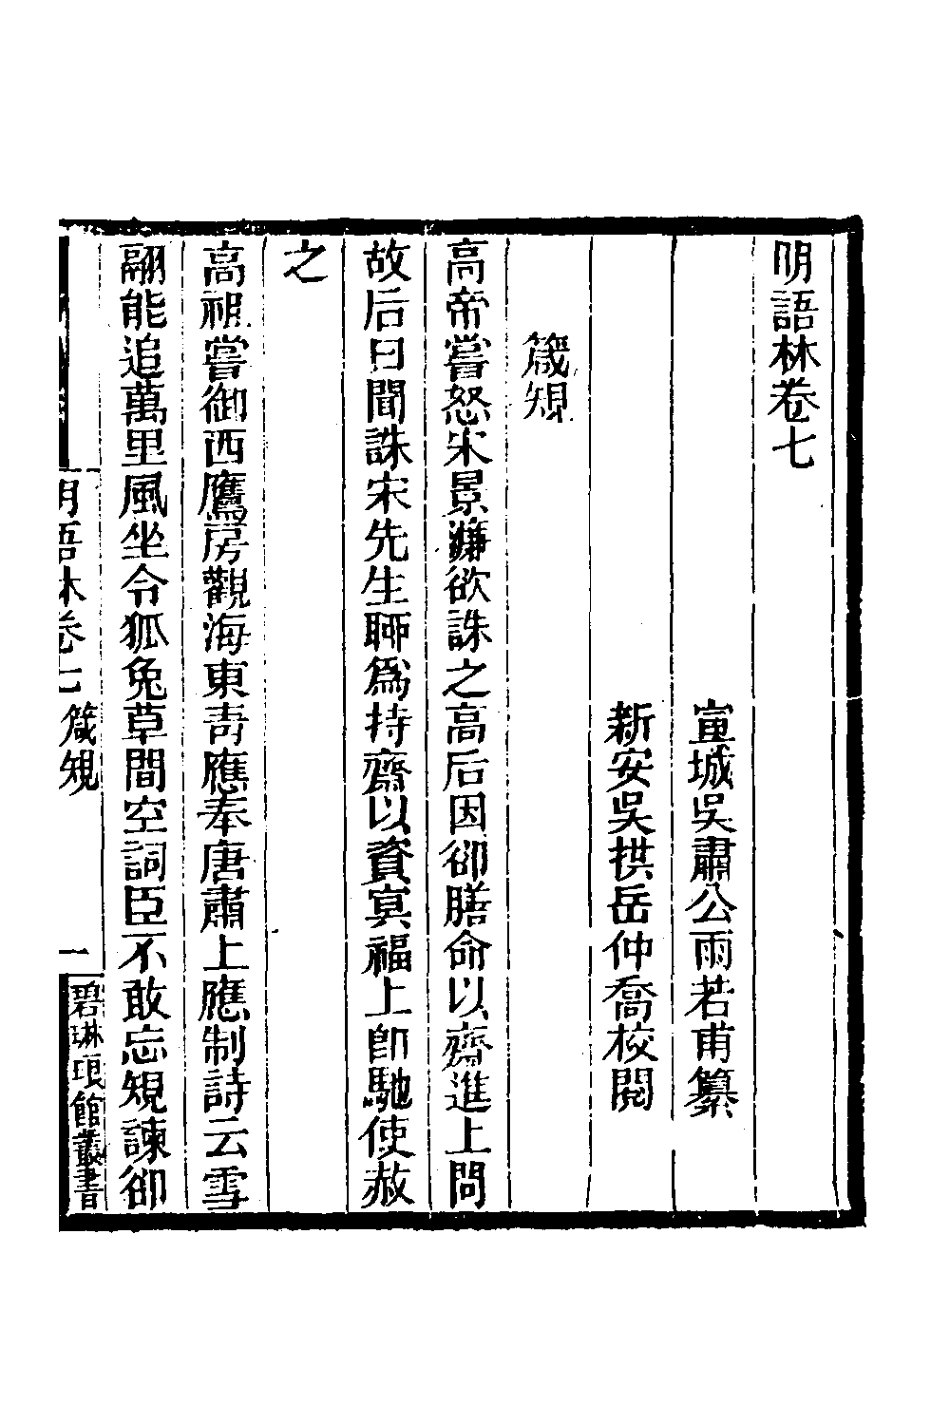 明語林卷七
宣城吳肅公雨若甫纂
新安吳拱岳仲喬校閱
箴規
高帝嘗怒宋景濂欲誅之高后因卻膳命以齋進上問
故后曰聞誅宋先生聊爲持齋以資冥福上卽馳使赦
之
高祖嘗御西鷹房觀海東靑應奉唐肅上應制詩云雪
翮能追萬里風坐令狐兔草間空詞臣不敢忘規諫卻
明語林卷七 箴規 一 碧琳琅館叢書